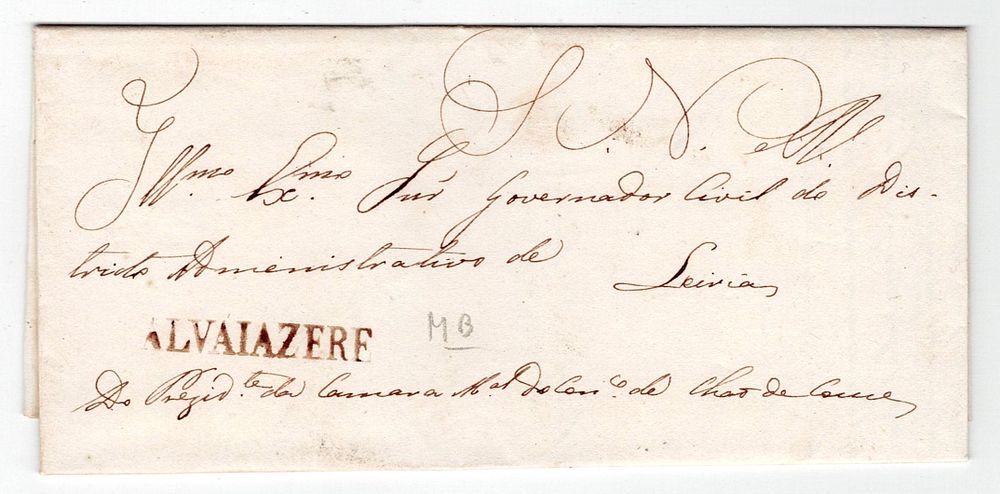 S. N. N.
Illmo Exmo Snr Governador Civil do Dis-
tricto Administrativo de Leiria
ALVAIAZERE
MB
Do Prezid.te da Camara M.al do Con.co de Chão de Couce